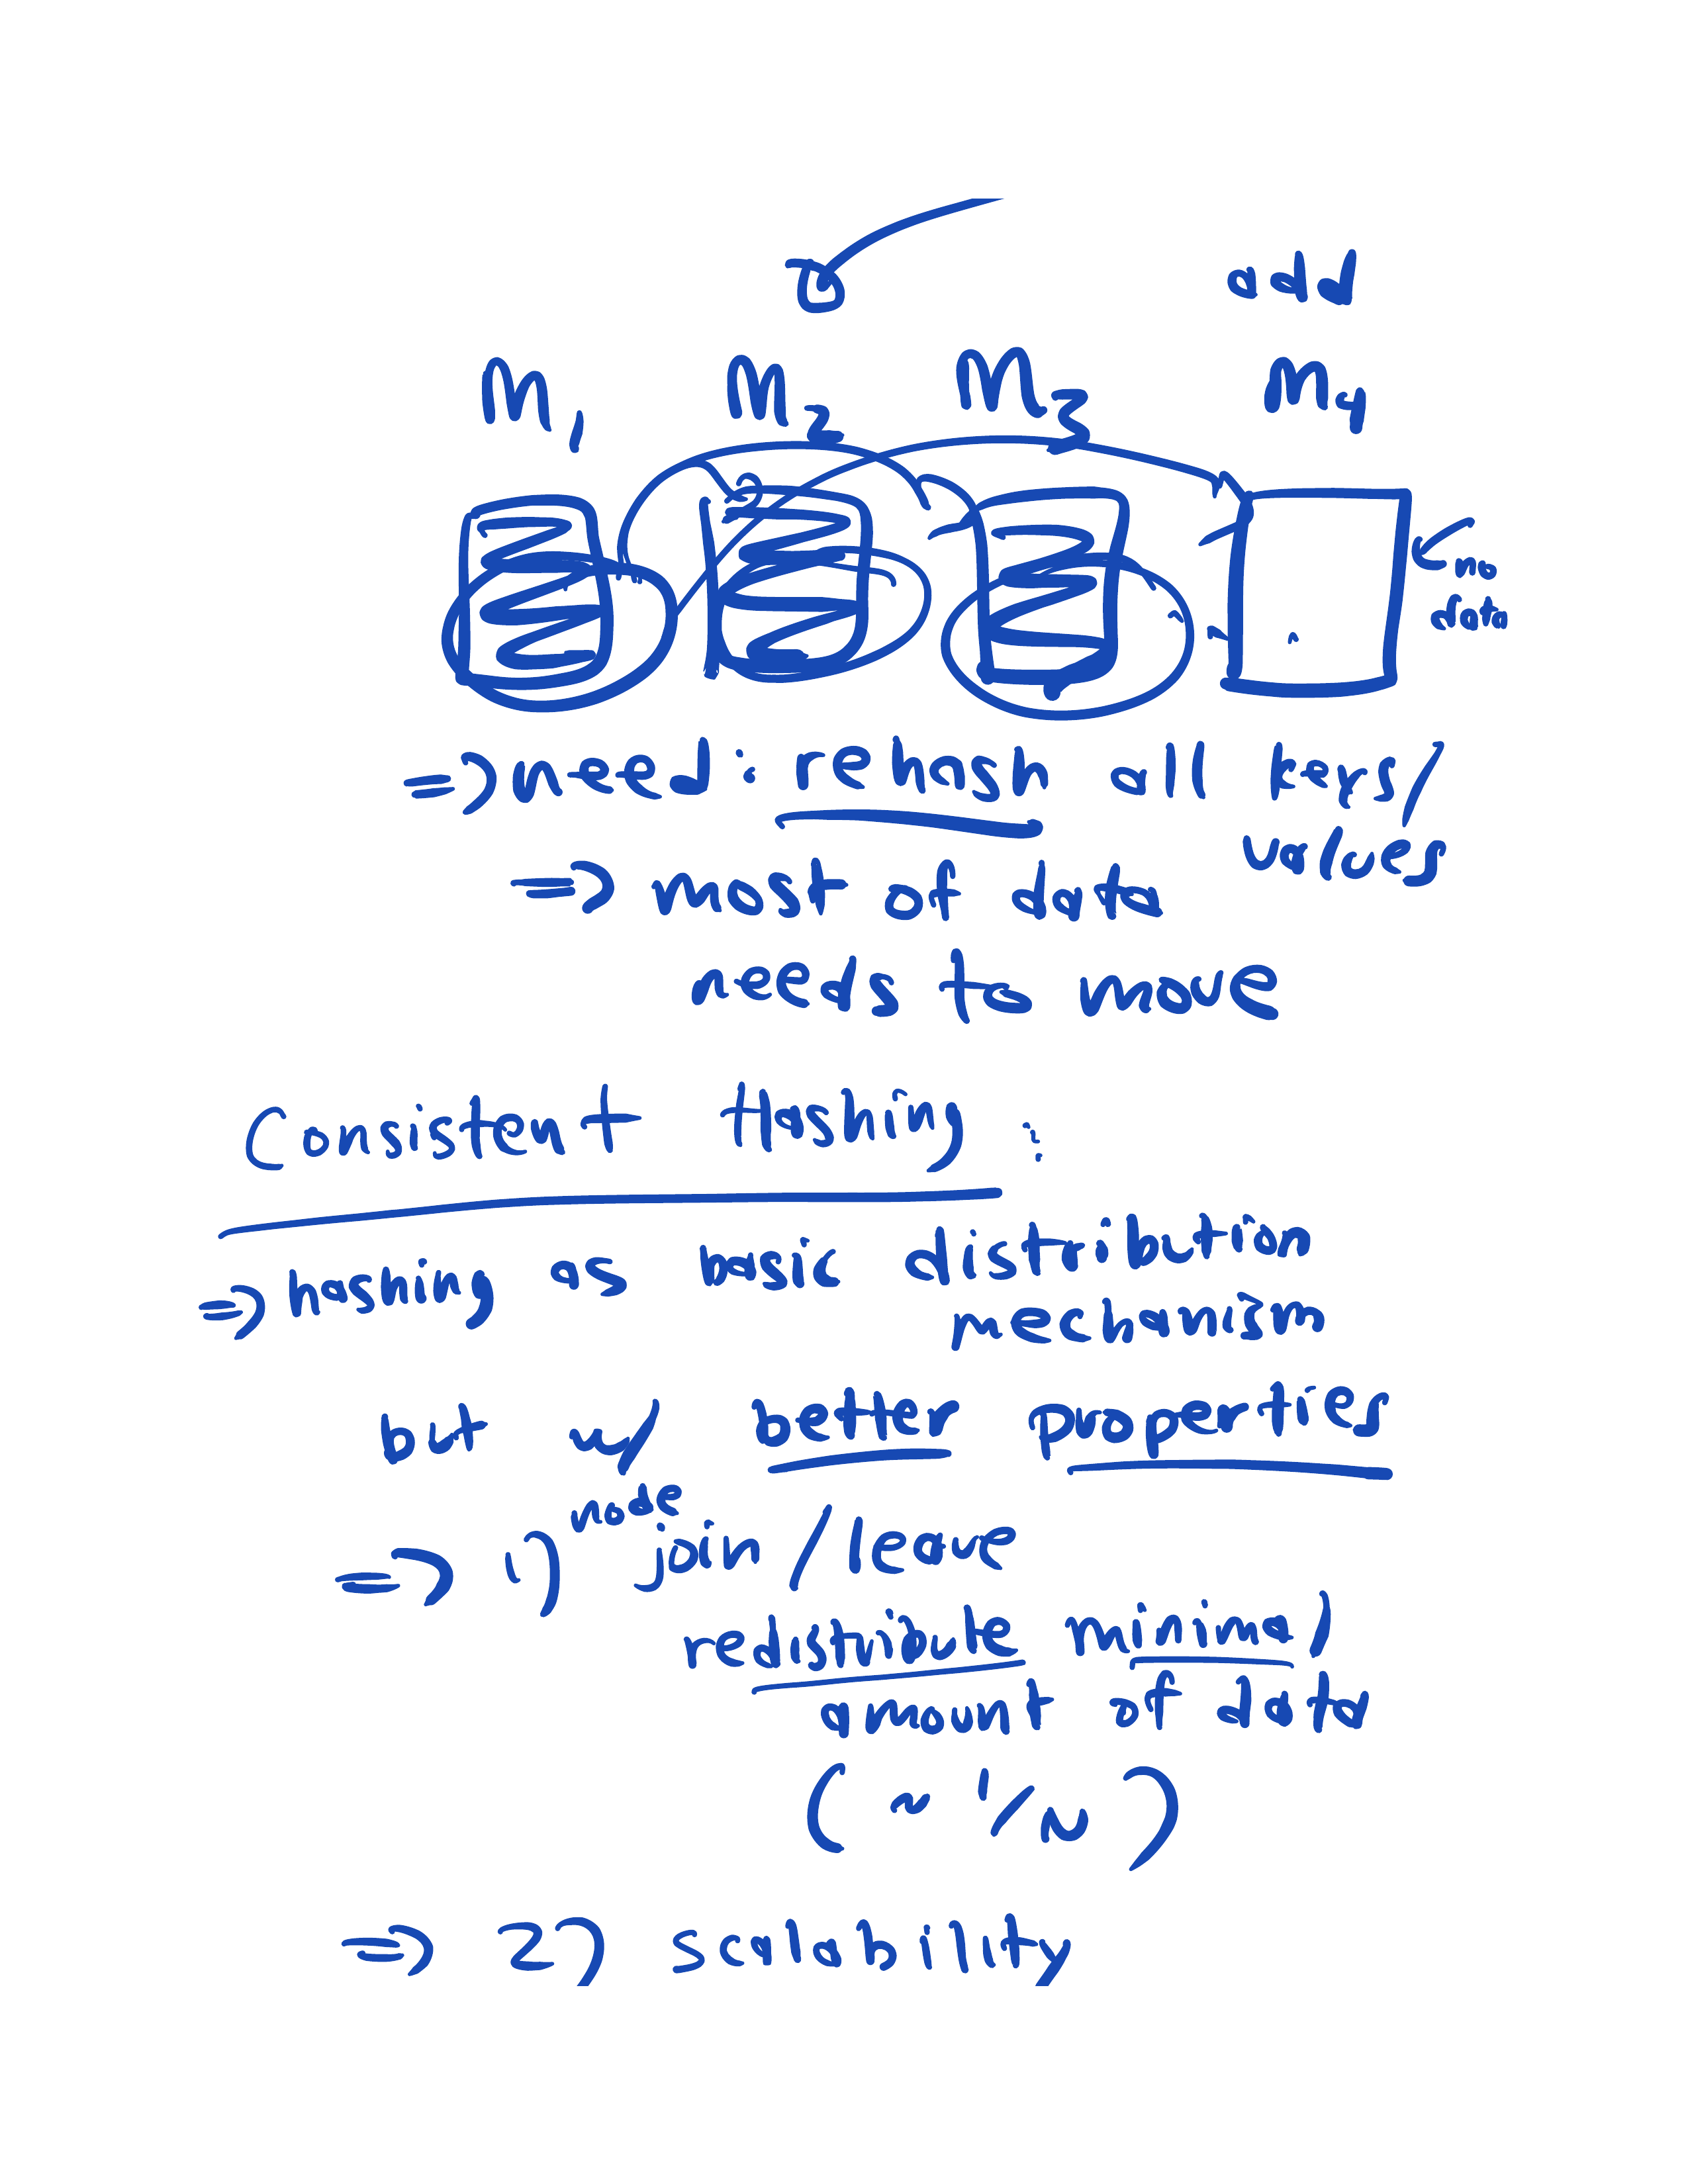 add
M1 M2 M3 M4
no
data
=> need: rehash all keys/
values
=> most of data
needs to move
Consistent Hashing:
=> hashing as basic distribution
mechanism
but w/ better properties
=> 1) node join/leave
redistribute minimal
amount of data
(~ 1/N)
=> 2) scalability